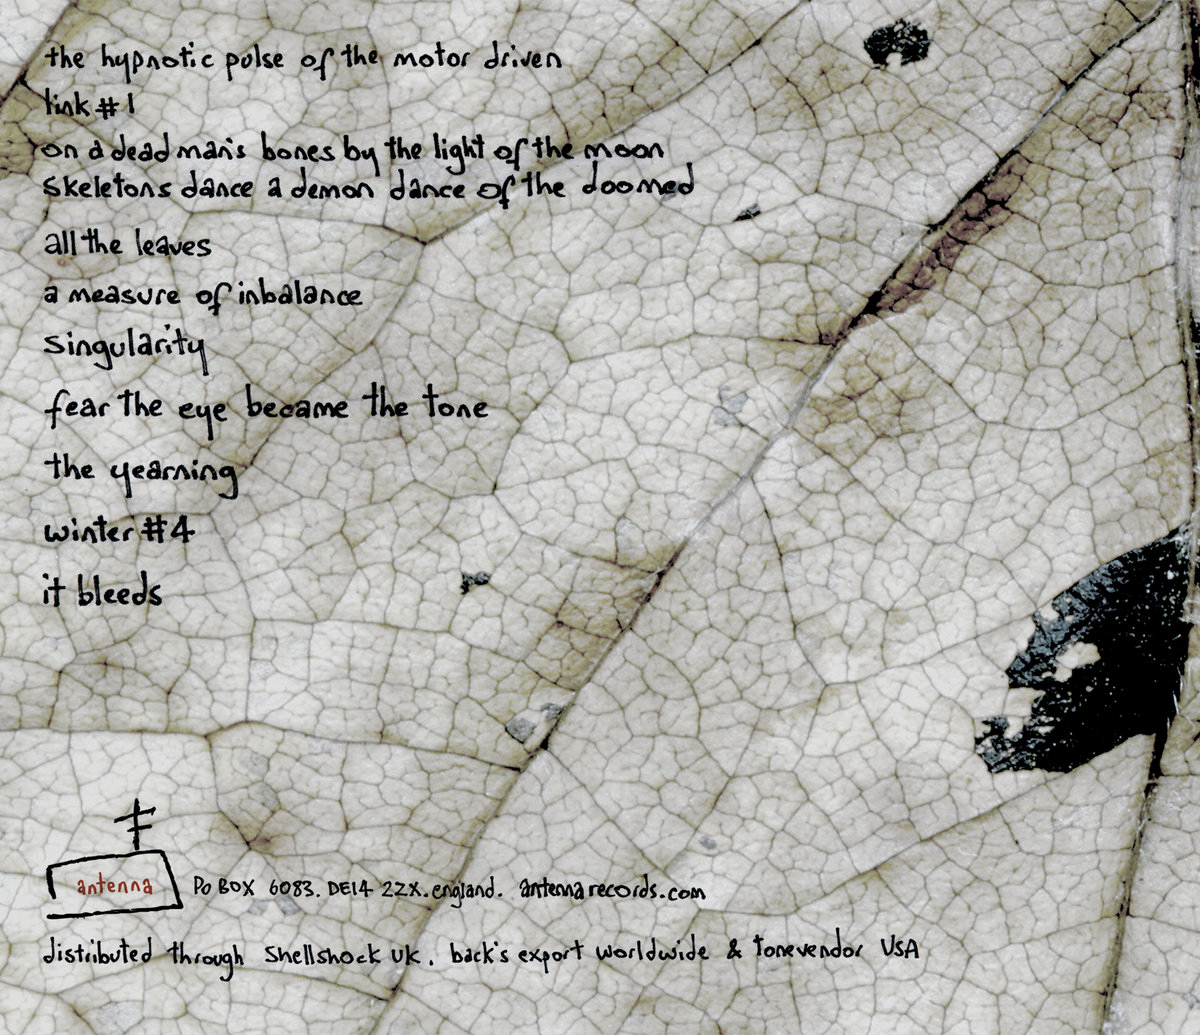 the hypnotic pulse of the motor driven
link #1
on a dead man's bones by the light of the moon
skeletons dance a demon dance of the doomed
all the leaves
a measure of inbalance
singularity
fear the eye became the tone
the yearning
winter #4
it bleeds
antenna
PO BOX 6083. DE14 2ZX. england. antennarecords.com
distributed through Shellshock UK. back's export worldwide & tonevendor USA